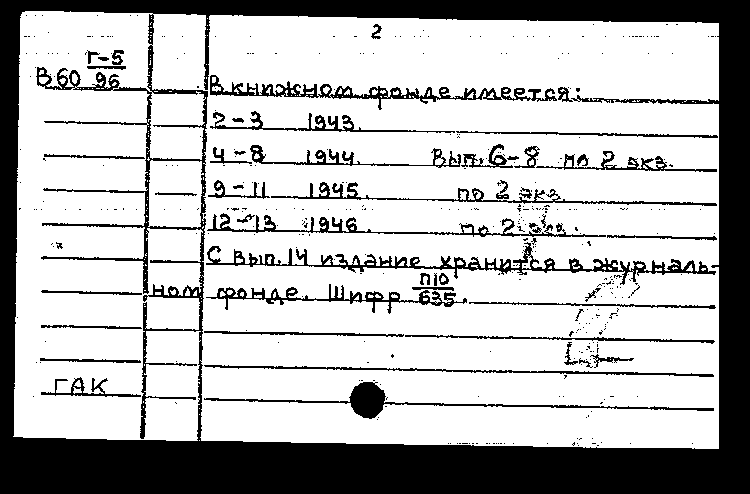 2
Г-5
В60 96
В книжном фонде имеется:
2-3 1943.
4-8 1944. Вып. 6-8 по 2 экз.
9-11 1945. по 2 экз.
12-13 1946. по 2 экз.
С вып. 14 издание хранится в журналь-
ном фонде. Шифр П10/635.
ГАК